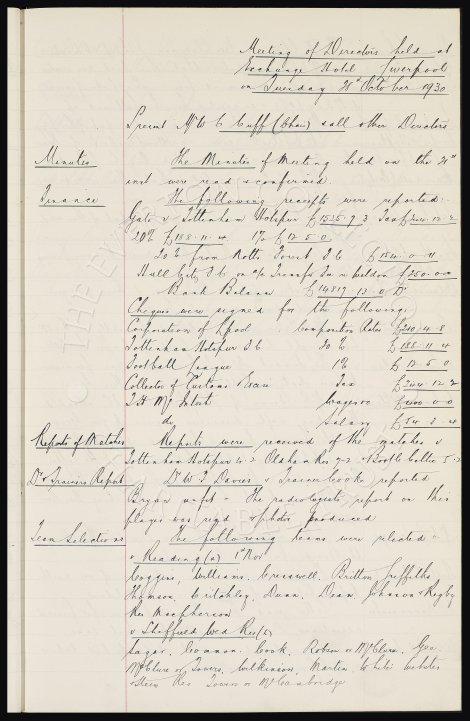 Meeting of Directors held at
Exchange Hotel Liverpool
on Tuesday 28th October 1930
Present Mr W C Cuff (Chair) & all other Directors
Minutes
The Minutes of Meeting held on the 21st
inst were read & confirmed.
Finance
The following receipts were reported:-
Gate v Tottenham Hotspur £1525. 9. 3 Tax £244. 12. 2
20% £188. 11. 4 1% £12. 5. 0
20% from Notts Forest F C £184. 0. 11
Hull City F C on a/c Transfer Fee £250. 0. 0
Bank Balance £14817. 13. 0
Cheques were signed for the following:
Corporation of L'pool Composition Rates £210. 4. 8
Tottenham Hotspur F C 20% £188. 11. 4
Football League 1% £12. 5. 0
Collector of Customs & Excise Tax £244. 12. 2
T. H. McIntosh Wages £400. 0. 0
do Salary
Reports of Matches
Reports were received of the matches v
Tottenham Hotspur 4-2 Oldham Res & Bootle Celtic
Dr & Trainers Report
Dr W F Davies & Trainer Cooke reported
Bryan unfit - The radiologists report on this
player was read & photos produced
Team Selections
The following teams were selected -
v Reading (a) 1st Nov
Coggins, Williams, Cresswell, Britton, Griffiths
Thomson, Critchley, Dunn, Dean, Johnson & Rigby
Res Macpherson
v Sheffield Wed Res (h)
Sagar, Common, Cook, Robson or McClure, Gee
McClure or Towers, Wilkinson, Martin, White, Webster
& Stein Res Towers or McCambridge